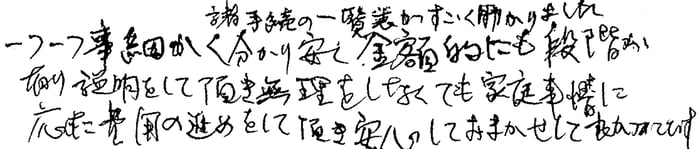 諸手続の一覧表がすごく助かりました
一つ一つ事細かく分かり安く金額的にも段階が
有り説明をして頂き無理をしなくても家庭事情に
応じた範囲の進めをして頂き安心しておまかせして